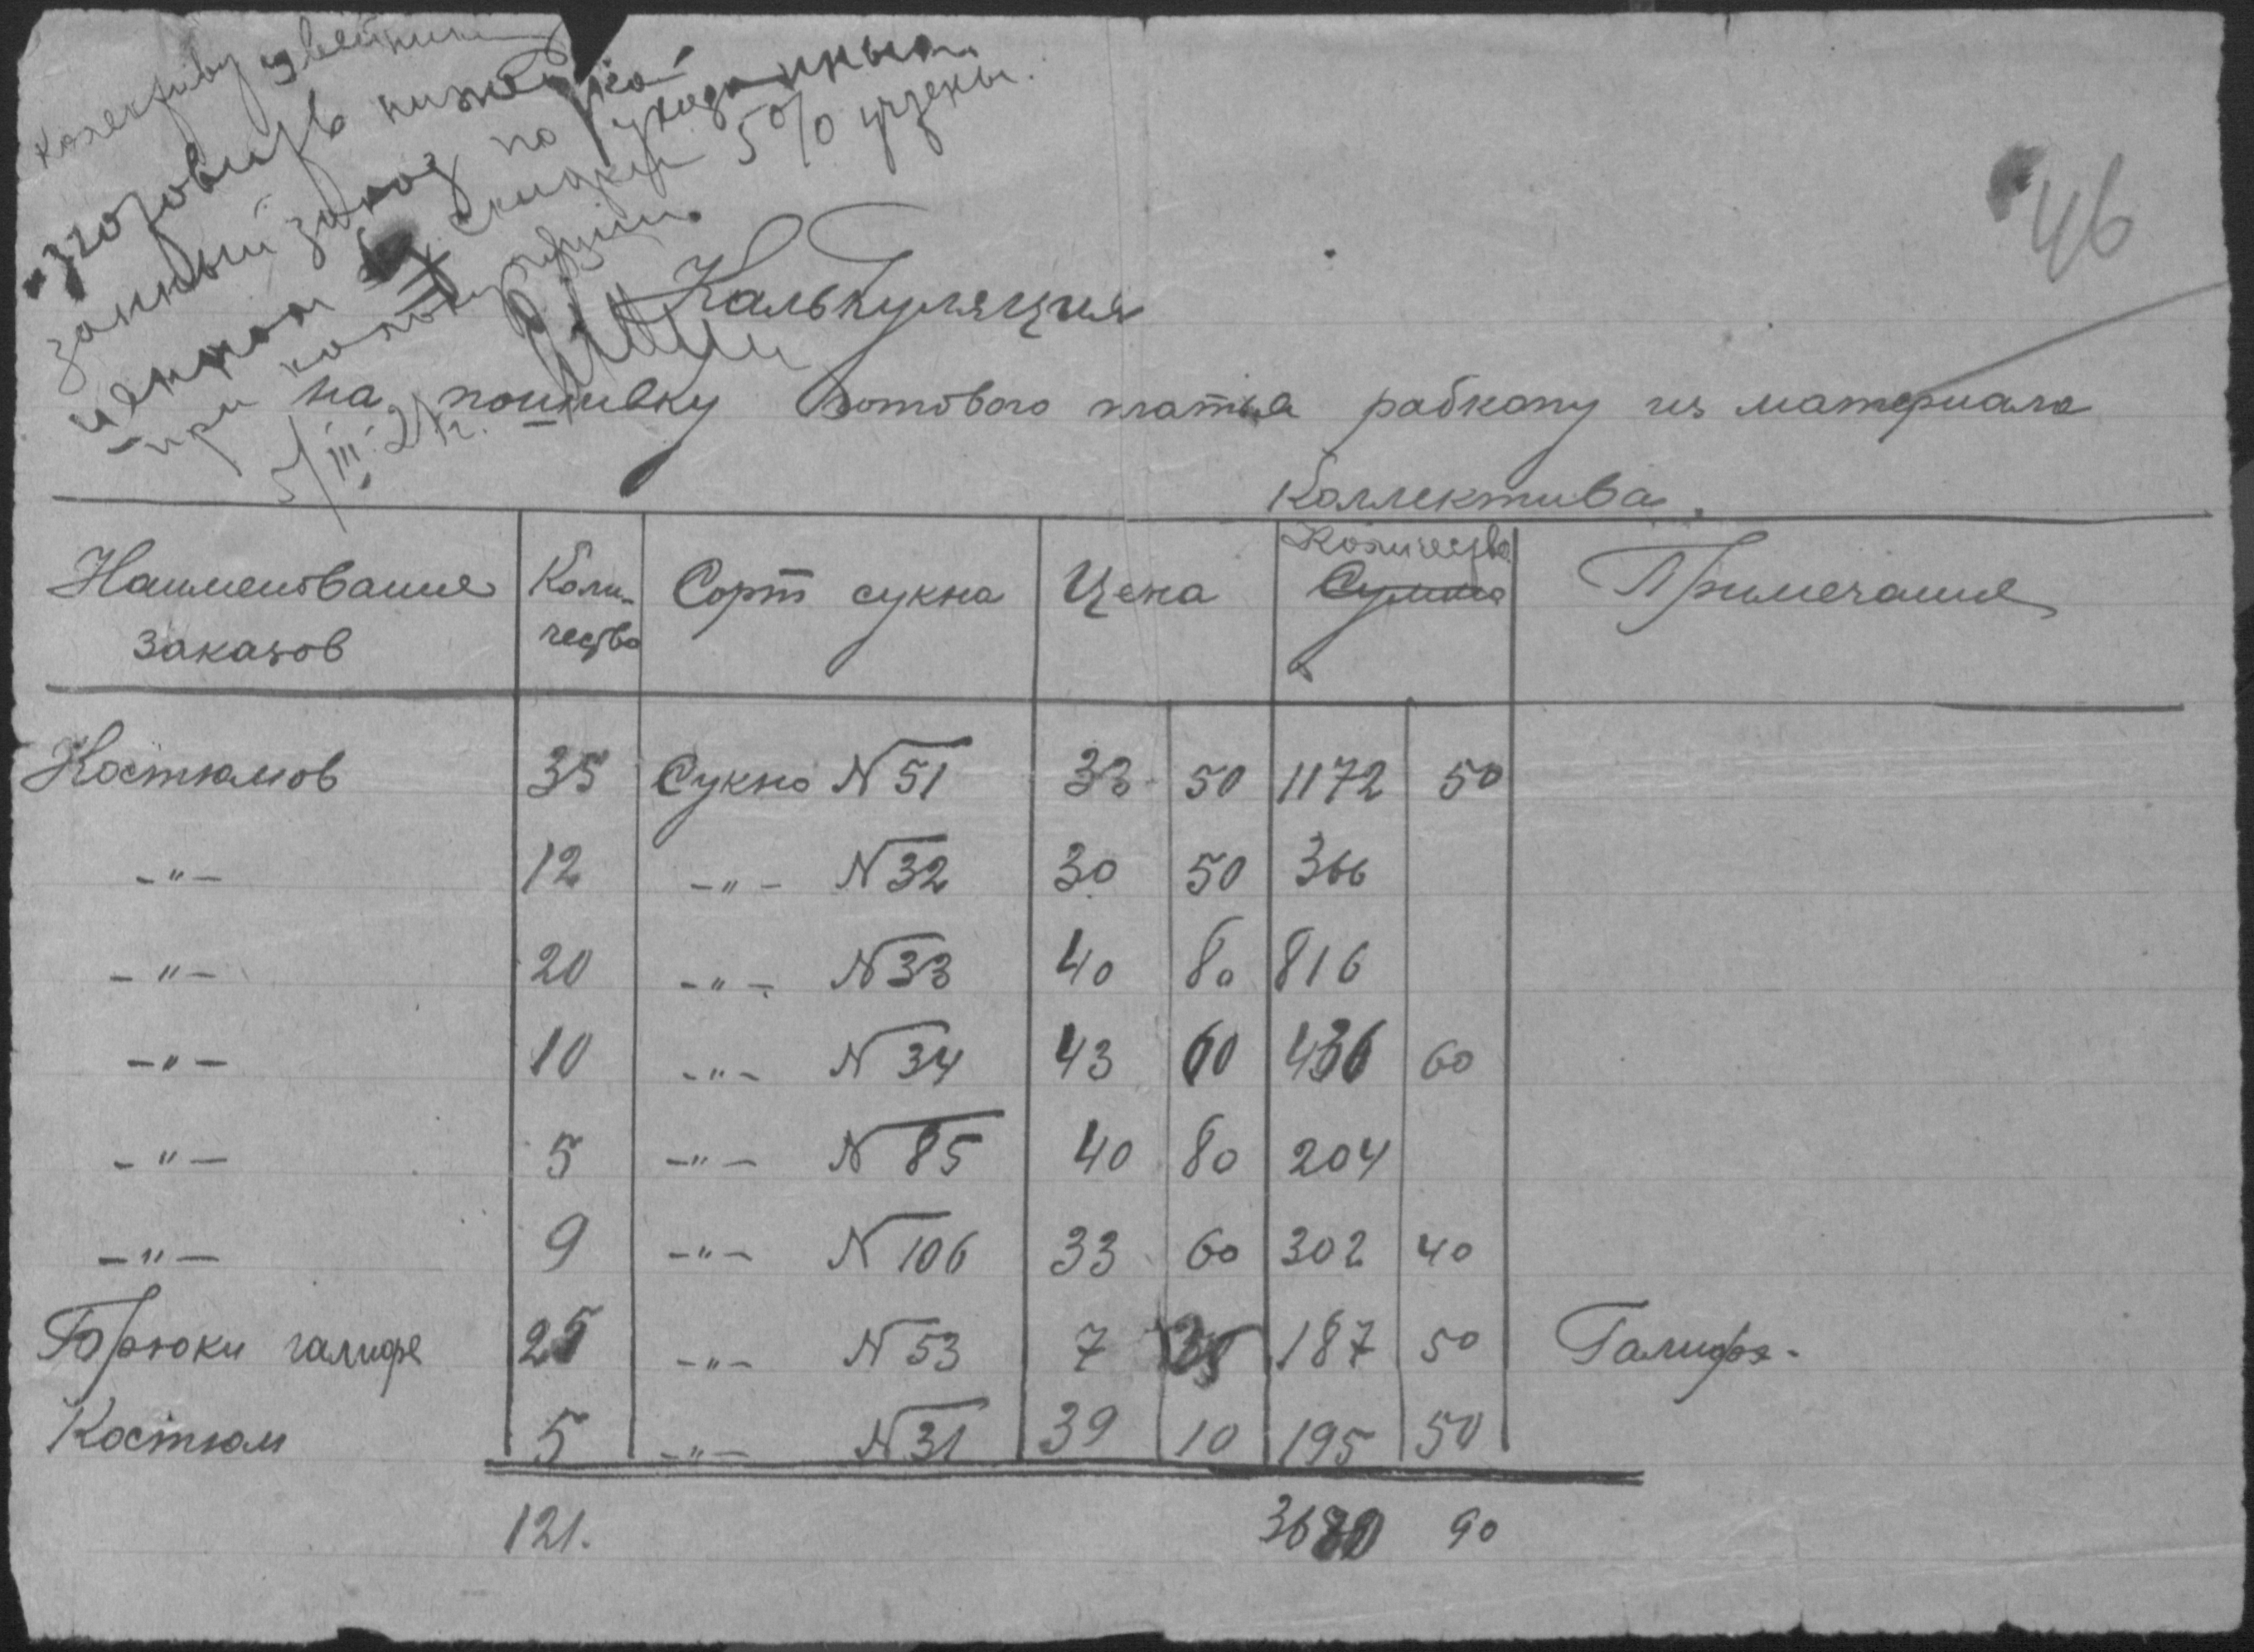 Колективу швейников
изготовить нижеука-
занный заказ по указанным
ценам скидки 5% уцены
при
5/III 24 г.
46
Калькуляция
на пошивку готового платья рабкопу из материала
Коллектива.
Наименование заказов | Коли-чество | Сорт сукна | Цена | Количество Сумма | Примечание
Костюмов 35 Сукно N 51 33 50 1172 50
-"- 12 -"- N 32 30 50 366
-"- 20 -"- N 33 40 80 816
-"- 10 -"- N 34 43 60 436 60
-"- 5 -"- N 85 40 80 204
-"- 9 -"- N 106 33 60 302 40
Брюки галифе 25 -"- N 53 7 187 50 Галифэ-
Костюм 5 -"- N 31 39 10 195 50
121. 3680 90